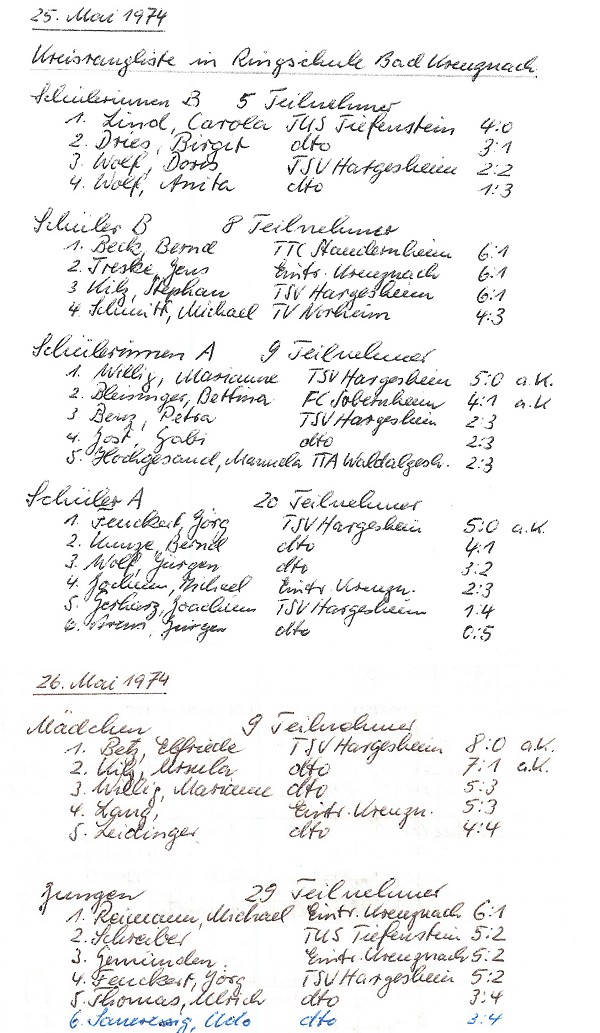 25. Mai 1974
Kreisrangliste in Ringschule Bad Kreuznach
Schülerinnen B 5 Teilnehmer
1. Lind, Carola TUS Tiefenstein 4:0
2. Dries, Birgit dto 3:1
3. Wolf, Doris TSV Hargesheim 2:2
4. Wolf, Anita dto 1:3
Schüler B 8 Teilnehmer
1. Beck, Bernd TTC Staudernheim 6:1
2. Treske, Jens Eintr. Kreuznach 6:1
3 Kilz, Stephan TSV Hargesheim 6:1
4. Schmitt, Michael TV Norheim 4:3
Schülerinnen A 9 Teilnehmer
1. Willig, Marianne TSV Hargesheim 5:0 a.K.
2. Bleisinger, Bettina FC Sobernheim 4:1 a.K
3 Benz, Petra TSV Hargesheim 2:3
4. Jost, Gabi dto 2:3
5. Hochgesand, Manuela TTA Waldalgesh. 2:3
Schüler A 20 Teilnehmer
1. Fenckert, Jörg TSV Hargesheim 5:0 a.K.
2. Kunze, Bernd dto 4:1
3. Wolf, Jürgen dto 3:2
4. Jochum, Michael Eintr. Kreuzn. 2:3
5. Gerharz, Joachim TSV Hargesheim 1:4
6. Jürgen dto 0:5
26. Mai 1974
Mädchen 9 Teilnehmer
1. Betz, Elfriede TSV Hargesheim 8:0 a.K.
2. Kilz, Ursula dto 7:1 a.K.
3. Willig, Marianne dto 5:3
4. Lang, Eintr. Kreuzn. 5:3
5. Leidinger dto 4:4
Jungen 29 Teilnehmer
1. Reimann, Michael Eintr. Kreuznach 6:1
2. Schreiber TUS Tiefenstein 5:2
3. Gemünden Eintr. Kreuznach 5:2
4. Fenckert, Jörg TSV Hargesheim 5:2
5. Thomas, Ulrich dto 3:4
6. Udo dto 3:4